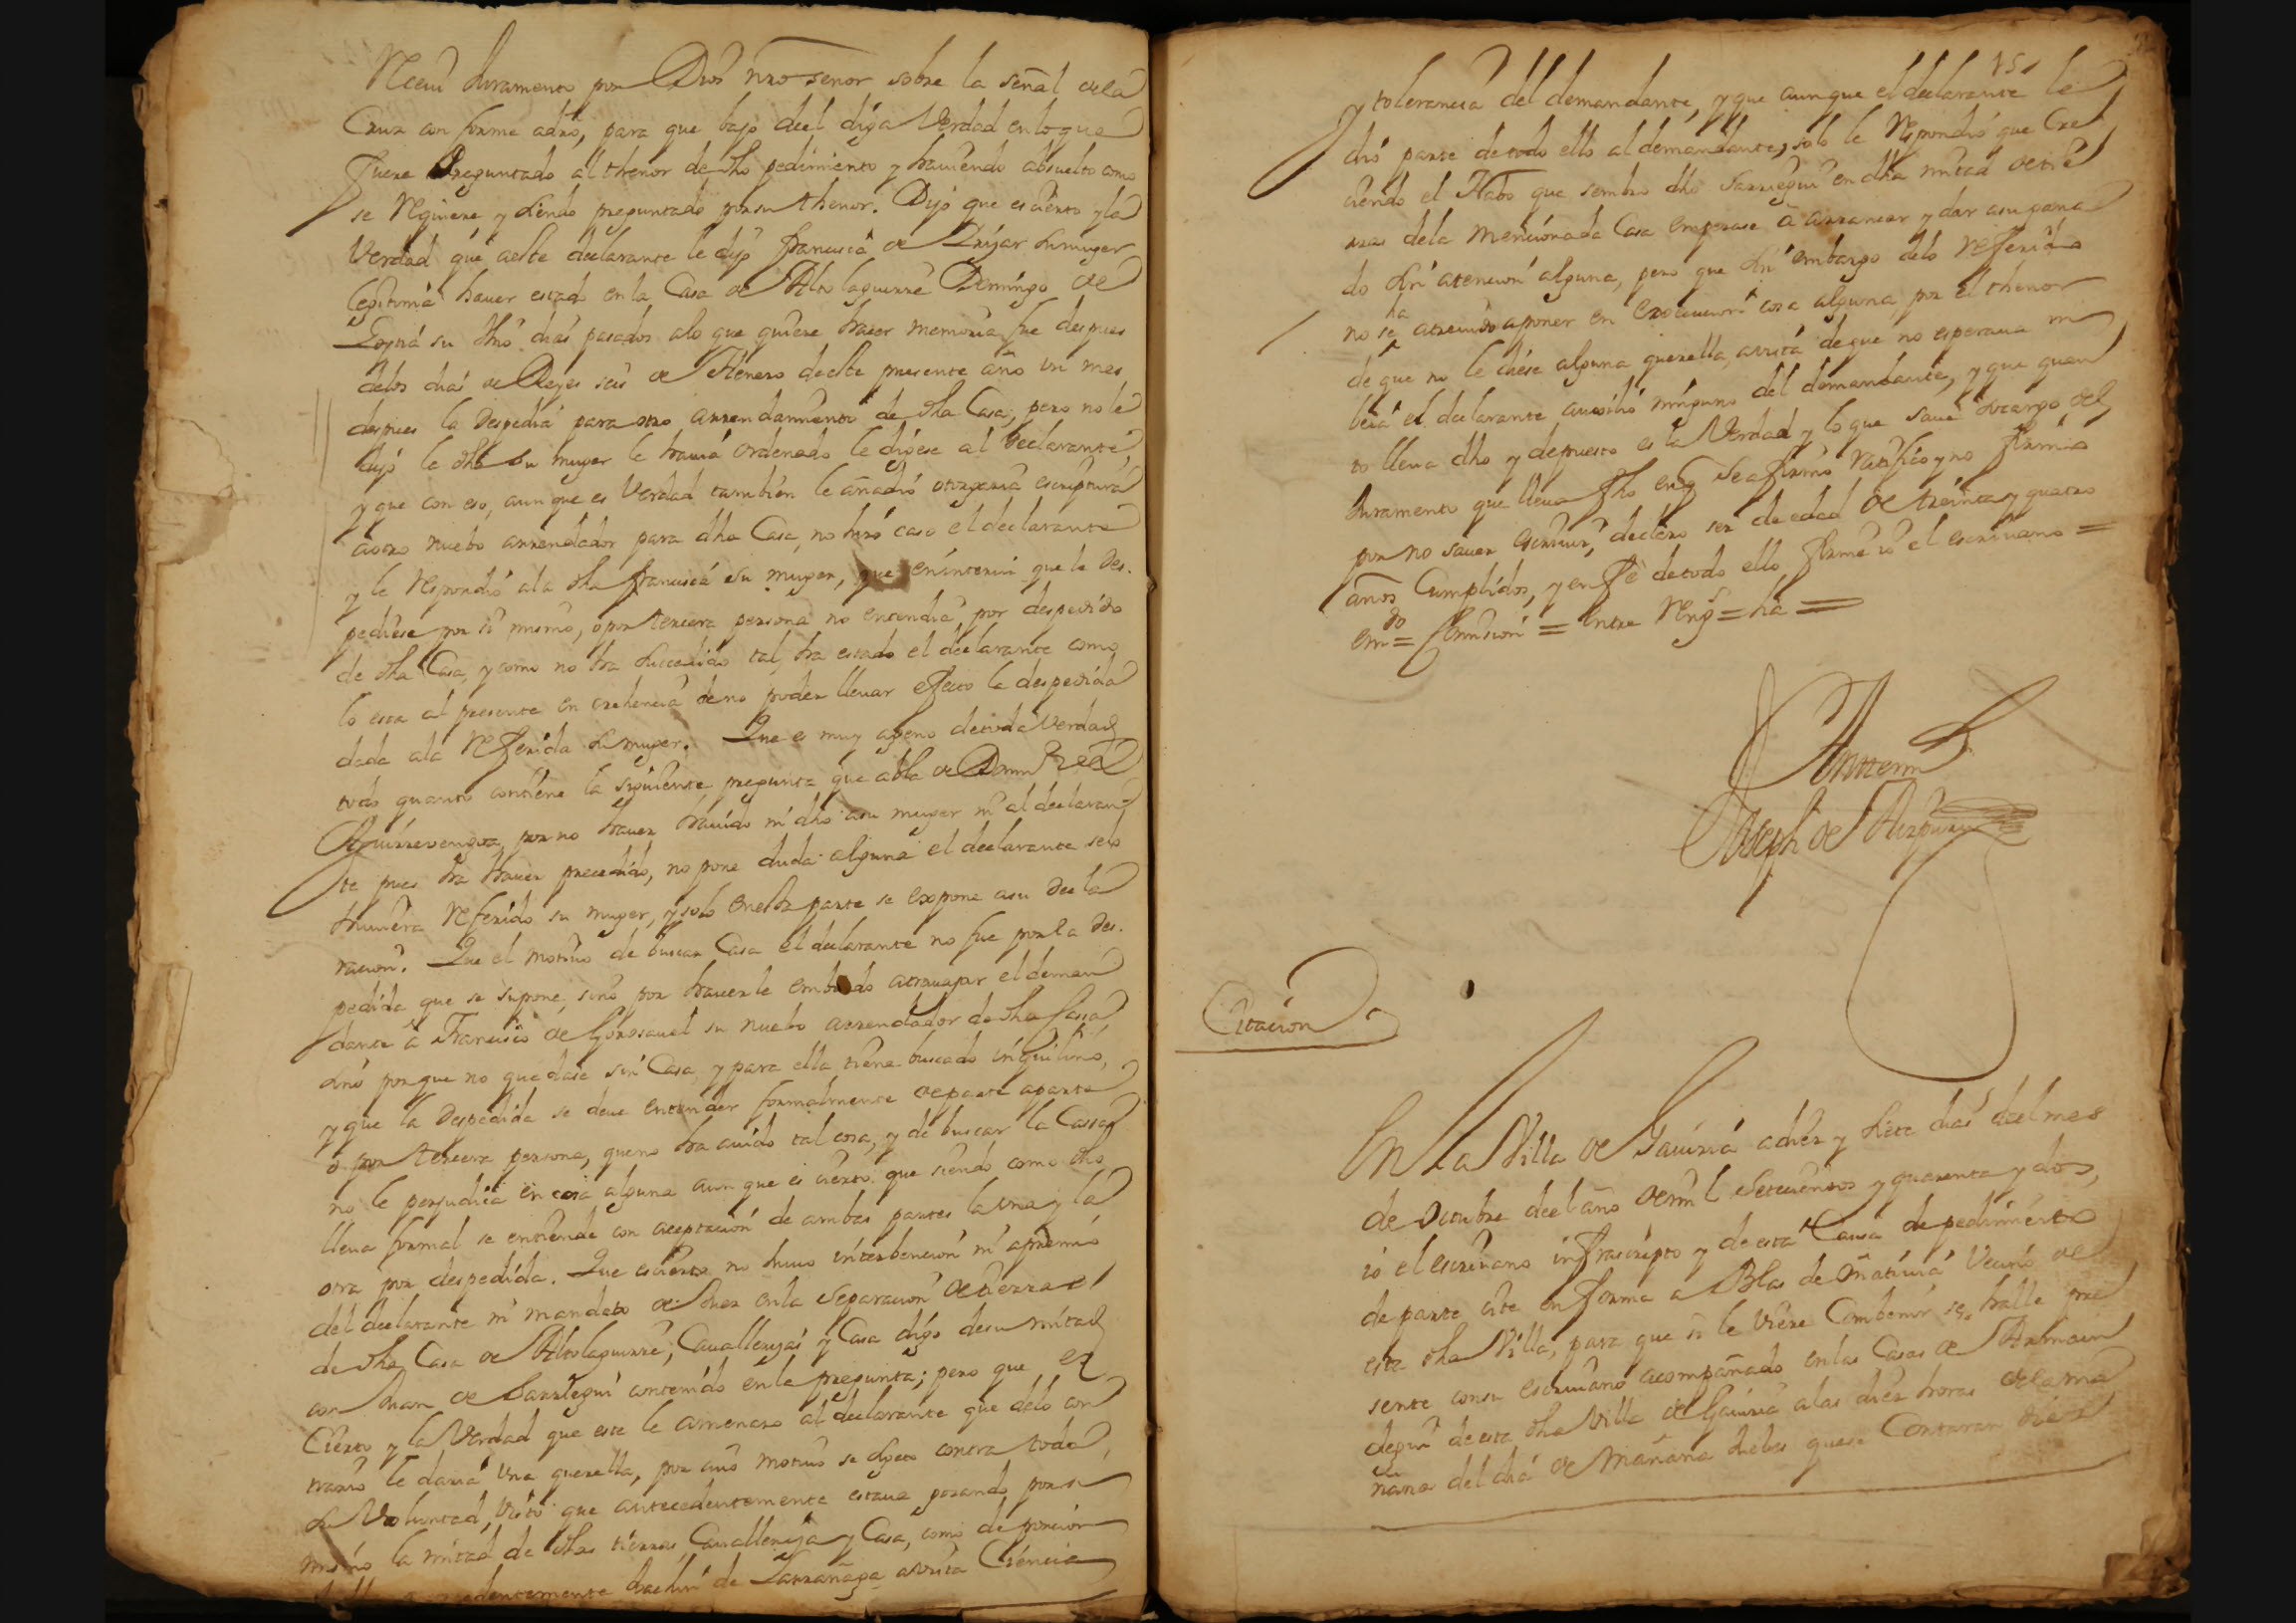 Reciui Juramento por Dios nro señor sobre la señal dela
Cruz con forme adro, para que bajo deel diga Verdad enloque
fuere Preguntado al thenor de dho pedimiento y hauiendo absuelto como
se Requiere y siendo preguntado porsu thenor. Dijo que es cierto yla
Verdad que aeste declarante le dijo francisca de su muger
legitima hauer estado en la Casa de Altolaguirre Domingo de
su dias pasados alo que quiere hacer memoria fue despues
delos dias de Reyes seis de Henero deeste presente año un mes
despues la Despedia para otro arrendamiento de dha Casa, pero nole
dijo le dha su muger le hauia ordenado le digese al declarante,
y que con eso, aun que es Verdad tambien le añadio otorgaria escriptura
aotro nuebo arrendador para dha Casa, no hizo caso el declarante
y le Respondio ala dha francisca su muger, que eninterin que le Des.
pediese por si mismo, o por tercera persona no entendia, por despedido
de dha Casa, y como no ha succedido tal, ha estado el declarante como
lo esta al presente en crehencia de no poder lleuar efecto la despedida
dada ala Referida su muger. Que es muy ageno detoda Verdad
todo quanto contiene la siguiente pregunta que abla de Domin
por no hauer hauido ni dho asu muger ni al declaran
te pues ha hauer precedido, no pone duda alguna el declarante selo
huuiera Referido su muger, y solo enesta parte se expone asu decla
racion. Que el motiuo de buscar Casa el declarante no fue por la Des.
pedida que se supone, sino por hauerle embiado atrauajar el deman
dante â Francisco de Gorosauel su nuebo arrendador de dha Casa
sino porque no quedase sin Casa, y para ella tiene buscado inquilino,
y que la Despedida se deue entender formalmente departe aparte
o por tercera persona, queno ha auido tal cosa, y de buscar la Cassa
no le perjudica en cosa alguna aun que es cierto que siendo como dho
lleua formal se entiende con aceptacion de ambas partes la una y la
otra por despedida. Que escierto no huuo interbencion ni apremio
del declarante ni mandato de Juez enla separacion detierras
de dha Casa de Altolaguirre, Caualleriças y Casa digo desu mitad
con Juan de Sarriegui contenido enla pregunta; pero que es
Cierto y la Verdad que este le amenazo al declarante que delo con
trario le daria una querella, por cuio motiuo se sugeto contra toda
su Voluntad, Visto que antecedentemente estaua gozando porsi
mismo la mitad de dhas tierras Caualleriça y Casa, como de porcion
de Larrañaga avista Ciencia
y tolerancia del demandante, y que aunque el declarante le
dió parte detodo ello al demandante, solo le Respondió que Cre
ciendo el Nabo que sembro dho Sarriegui en dha mitad detie
rras dela mencionada Casa empezase â arrancar y dar asu gana
do sin atencion alguna, pero que sin embargo delo Referido
ha
no se atreuido aponer en execucion cosa alguna, por el thenor
de que no le diese alguna querella, avista deque no esperaua
el declarante auxilio ninguno del demandante, y que quan
to lleua dho y depuesto es la Verdad y lo que saue socargo del
Juramento que lleua fho enq se afirmo Ratifico y no firmó
por no sauer escriuir, declaro ser de edad de treinta y quatro
años Cumplidos, y en fe detodo ello firme io el escriuano =
emdo = = entre Rengs = ha =
Antemi
Joseph de Aizpuru
Citacion
En La Villa de Gauiria adiez y siete dias deel mes
de Octubre deel año demil Setecientos y quarenta y dos,
io el escriuano infrascripto y de esta Causa de pedimiento
de parte cite en forma a Blas de Oñativia Vecino de
esta dha Villa, para que si le Viere Combenir se halle pre
sente consu escriuano acompañado enlas Casas de
de esta dha Villa de Gauiria alas diez horas dela ma
ñana del dia de Mañana Juebes quese Contaran diez